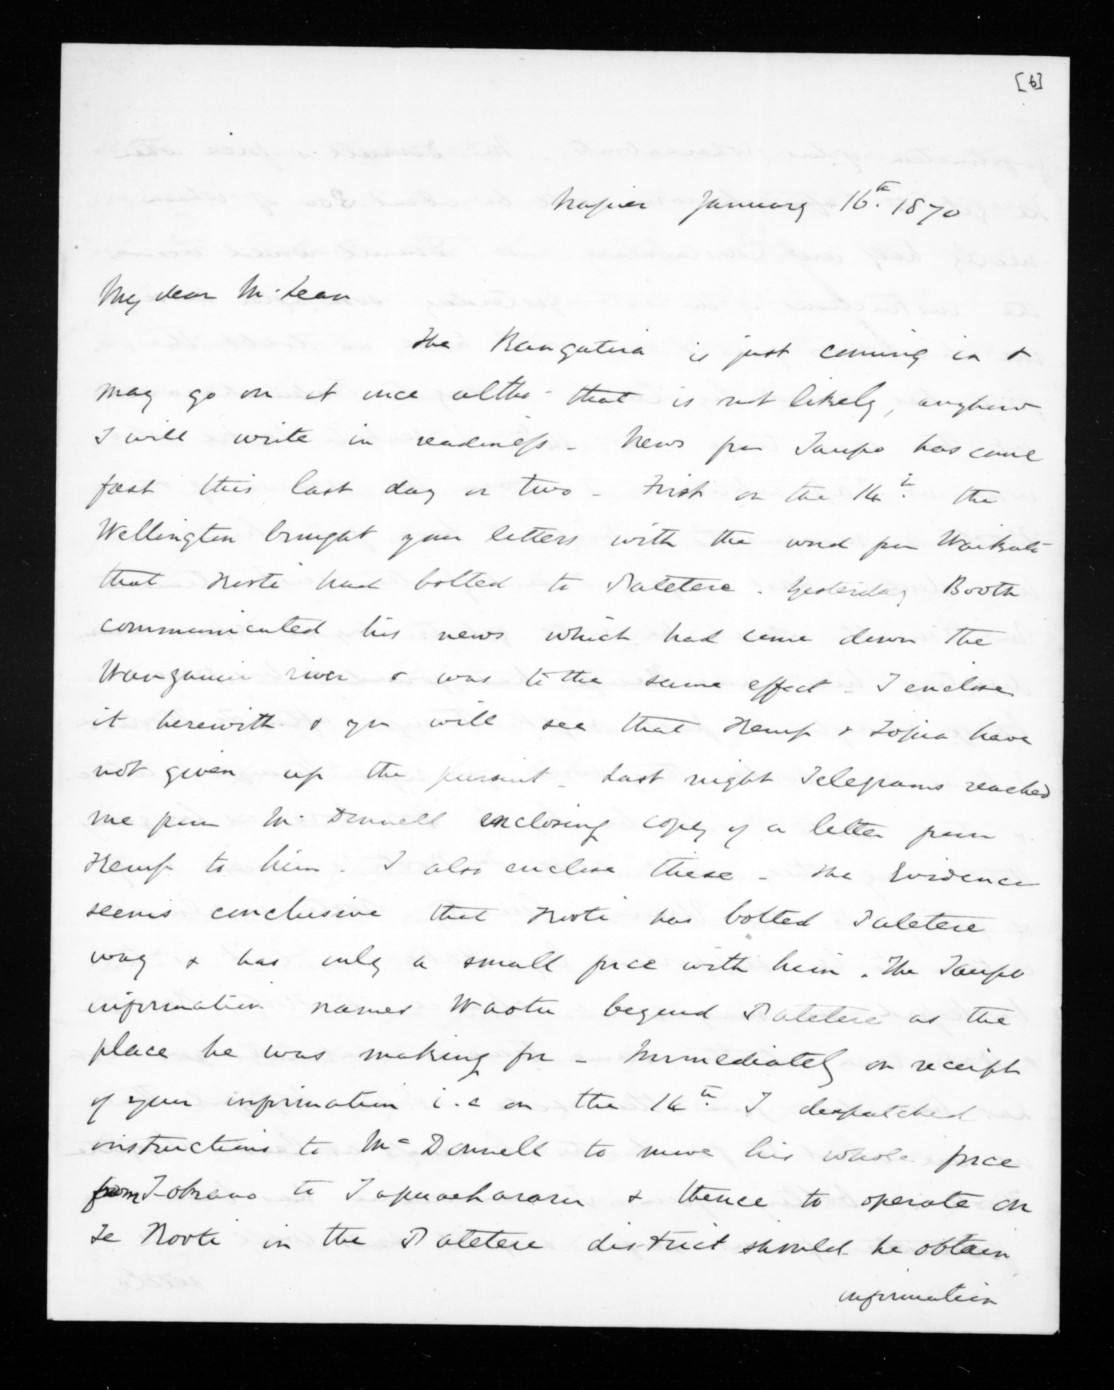 [6]
Napier January 16th. 1870
My dear McLean
The Rangatira is just coming in &
may go on at once altho' that is not likely, anyhow
I will write in readiness - News from Taupo has come
fast this last day or two - First on the 14th. the
Wellington brought your letters with the word from Waikato
that Kooti had bolted to Patetere. Yesterday Booth
communicated his news which had come down the
Wanganui river & was to the same effect - I enclose
it herewith & you will see that Kemp & Topia have
not given up the pursuit - Last night Telegrams reached
me from Mc Donnell enclosing copy of a letter from
Kemp to him. I also enclose these - The Evidence
seems conclusive that Kooti has bolted Patetere
way & has only a small force with him. The Taupo
information names Waotu beyond Patetere as the
place he was making for - Immediately on receipt
of your information i.e on the 14th. I despatched
instructions to Mc Donnell to move his whole force
from Tokano to Tapuaeharuru & thence to operate on
Te Kooti in the Patetere district should he obtain
information